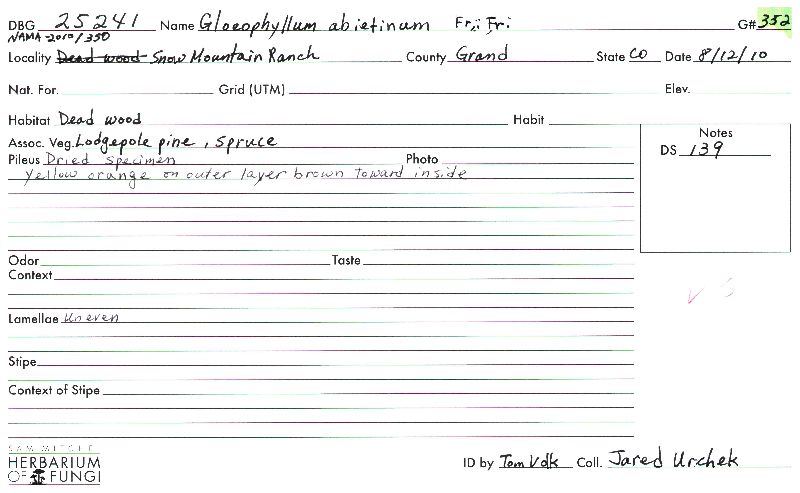 DBG 25241 Name Gloeophyllum abietinum Fr.: Fr. G# 352
NAMA-2010/350
Locality Dead wood Snow Mountain Ranch County Grand State CO Date 8/12/10
Nat. For. Grid (UTM) Elev.
Habitat Dead wood Habit
Assoc. Veg. Lodgepole pine, spruce
Notes
DS 139
Pileus Dried specimen Photo
Yellow orange on outer layer brown toward inside
Odor Taste
Context
Lamellae Uneven
Stipe
Context of Stipe
SAM MITCHEL
HERBARIUM
OF FUNGI
ID by Tom Volk Coll. Jared Urchek